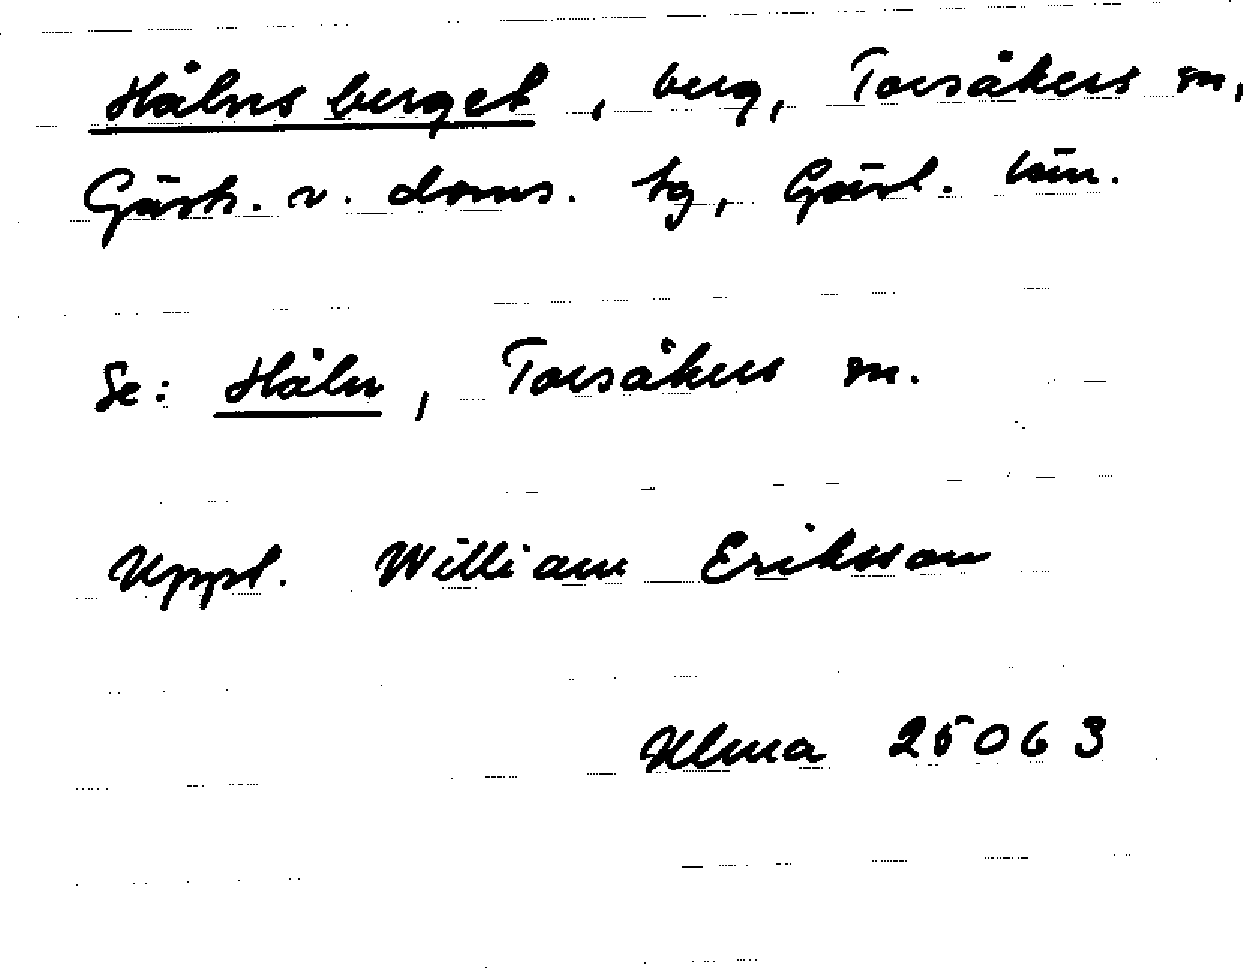 Hålnsberget, berg, Torsåkers sn,
Gästr. v. doms. tg, Gävl. län.
Se: Håln, Torsåkers sn.
Uppl. William Eriksson
Ulma 25063